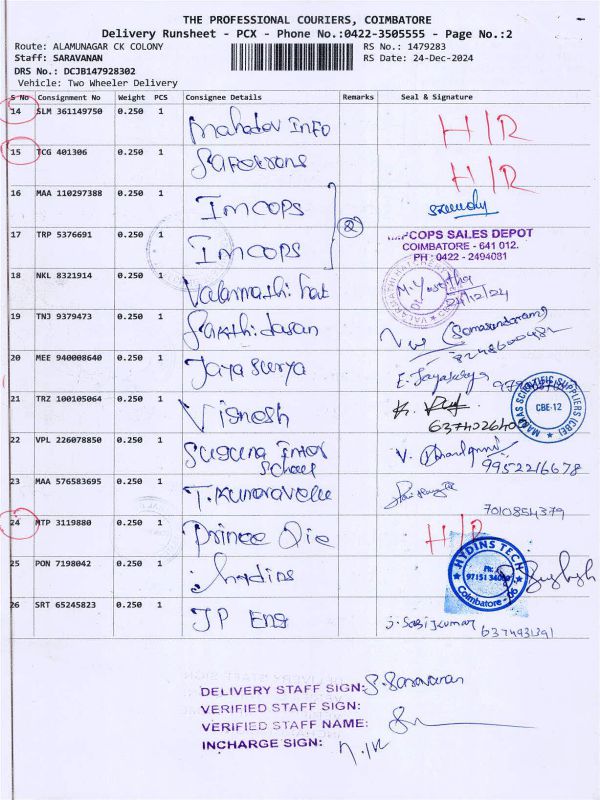 THE PROFESSIONAL COURIERS, COIMBATORE
Delivery Runsheet - PCX - Phone No.:0422-3505555 - Page No.:2
Route: ALAMUNAGAR CK COLONY
RS No.: 1479283
Staff: SARAVANAN
RS Date: 24-Dec-2024
DRS No.: DCJB147928302
Vehicle: Two Wheeler Delivery
S No Consignment No Weight PCS Consignee Details Remarks Seal & Signature
14 SLM 361149750 0.250 1 Mahadev INFO H/R
15 TCG 401306 0.250 1 H/R
16 MAA 110297388 0.250 1 IMCOPS
2
17 TRP 5376691 0.250 1 IMCOPS
IMPCOPS SALES DEPOT
COIMBATORE - 641 012.
PH : 0422 - 2494081
18 NKL 8321914 0.250 1 Valarmathi hat
24/12/24
19 TNJ 9379473 0.250 1 Sakthi dasan
20 MEE 940008640 0.250 1 Jaya Surya E. Jayasurya
21 TRZ 100105064 0.250 1 Vignesh
MADRAS SCIENTIFIC SUPPLIERS (CBE)
CBE-12
22 VPL 226078850 0.250 1 Suguna Inter School V.
9952216678
23 MAA 576583695 0.250 1 T. Kumaravelu
7010854379
24 MTP 3119880 0.250 1 Prince Die H/R
25 PON 7198042 0.250 1 hydins
HYDINS TECH
Ph:
Coimbatore - 66
26 SRT 65245823 0.250 1 JP Eng
DELIVERY STAFF SIGN: S. Saravanan
VERIFIED STAFF SIGN:
VERIFIED STAFF NAME:
INCHARGE SIGN: